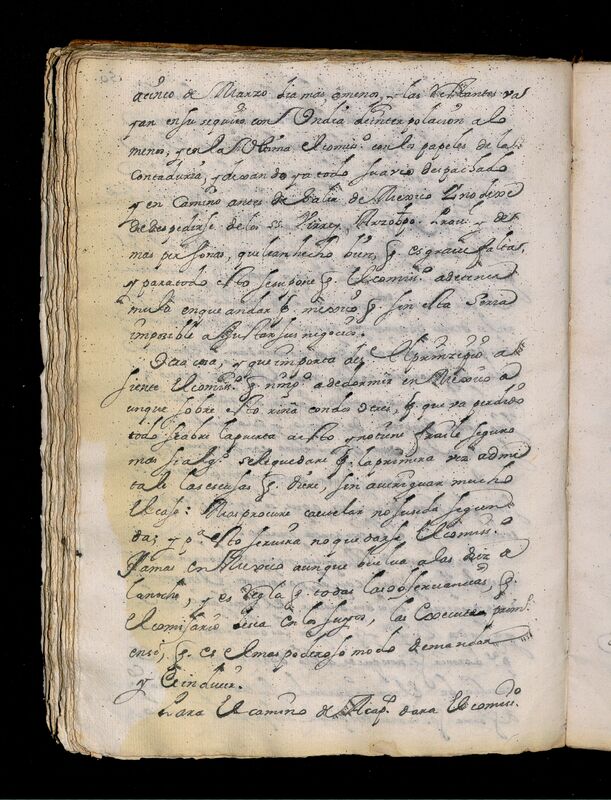 acinco de Marzo dia mas ómenos, y las de Plantas va
yan en su seguim.to con 1 Yndia de interpolacion a lo
menos, y en la Vltima El comiss.o con los papeles de las
Contaduria, y dexando ya todo su avio despachado
y en Camino antes de salir de Mexico no dexe
de despedirse de los SS. Virrey, Arzobpo. y de
mas personas, que han hecho bien, q. es grave falta,
y para todo esto se supone q. El comiss.o a de tener
mula en que andar p. mexico, q. sin esta seria
imposible a Justar sus negocios.
Otra cosa, y que importa de El principio a
siente El comiss.o q. ning.o a de dormir en Mexico a
unque sobre esto riña con do deses, q. que va perdido
todo se abre la puerta a esto y no tiene fraile seguro
mas si alg.o se le quedare q. la primera vez admi
tale las escusas q. diere, sin averiguar mucho
El caso: Mas procure cautelar no suseda segun
da; y p.a esto servira no quedarse El comiss.o
Jamas en Mexico aunque buelva a las diez de
la noche, y es regla q. todas las observancias, q.
El comisario desea en los suyos, las Execute prim.o
en sí, q. es el mas poderoso modo de mandar
y Ynduzir.
Para El camino de Acap.co dara El comiss.o